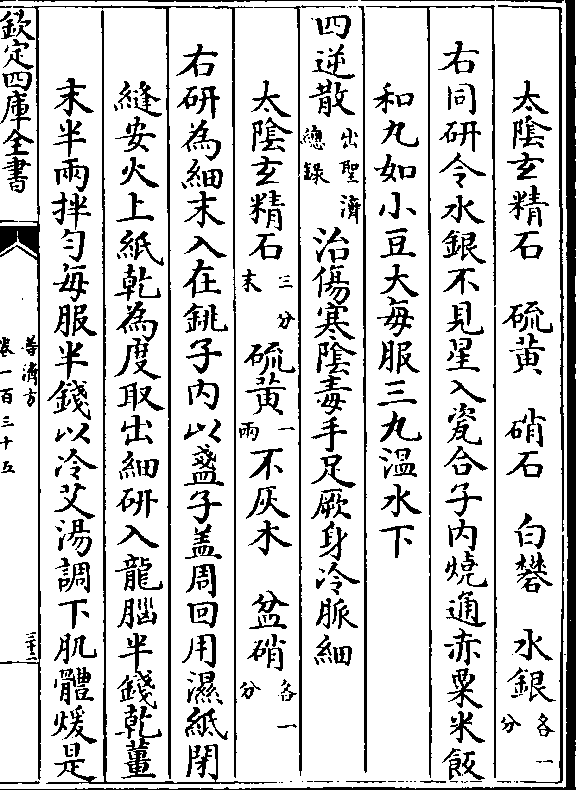 太陰玄精石 硫黄 硝石 白礬 水銀各一分
右同研令水銀不見星入瓷合子内燒通赤粟米飯
和丸如小豆大每服三丸温水下
四逆散出聖濟總錄 治傷寒陰毒手足厥身冷脈細
太陰玄精石三分末 硫黄一兩 不灰木 盆硝各一分
右研為細末入在銚子内以盞子盖周回用濕紙閉
縫安火上紙乾為度取出細研入龍腦半錢乾薑
末半兩拌勻每服半錢以冷艾湯調下肌體煖是
欽定四庫全書
普濟方
卷一百三十五
三十二